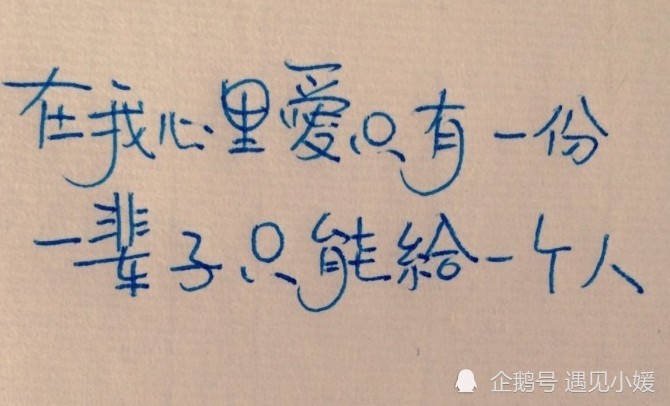 在我心里爱只有一份
一辈子只能給一个人
企鹅号 遇见小媛